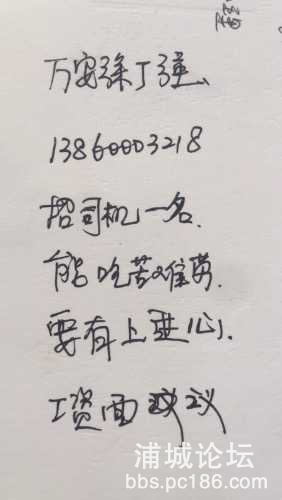 万安涂丁强
13860003218
招司机一名.
能吃苦难劳.
要有上进心.
工资面议
浦城论坛
bbs.pc186.com